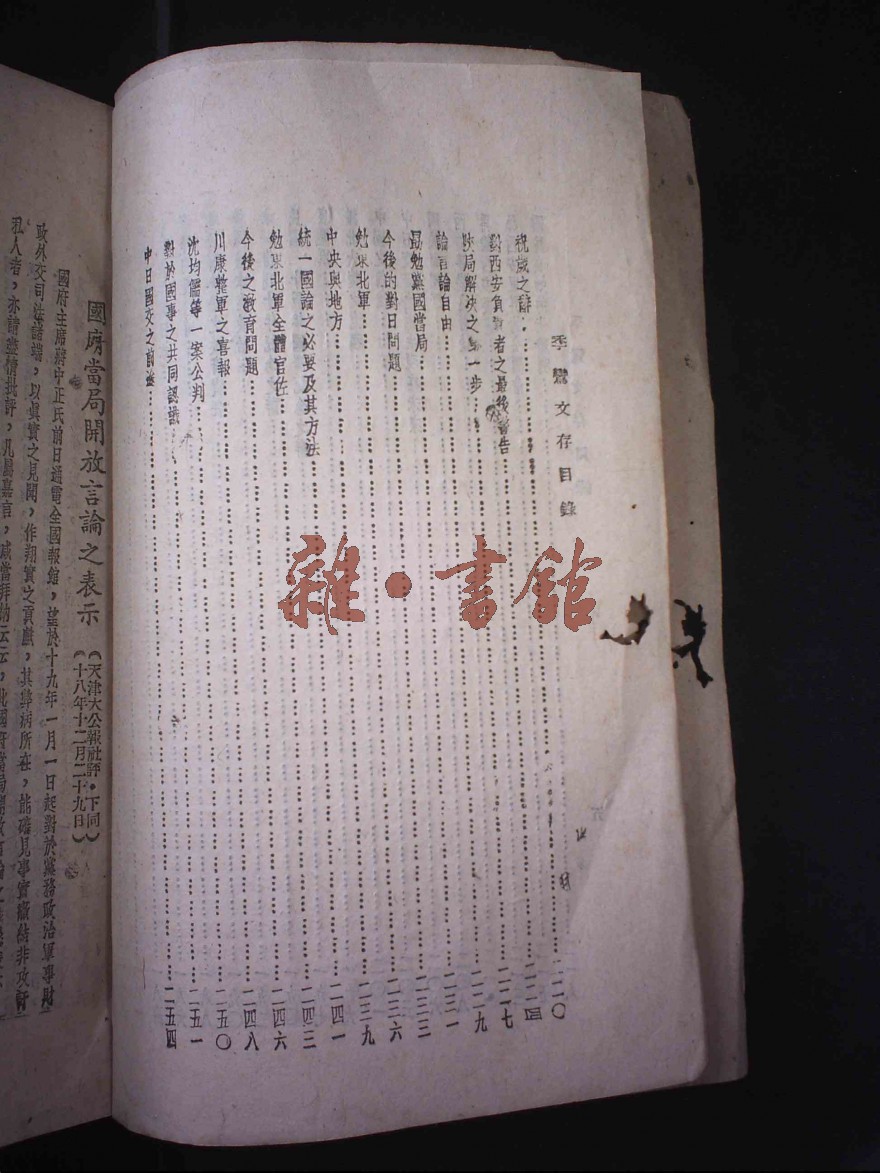 季鸞文存目錄
祝歲之辭……二二〇
對西安負責者之最後警告……二二四
陝局解決之第一步……二二七
論言論自由……二二九
勉黨國當局……二三三
今後的對日問題……二三六
勉東北軍……二三九
中央與地方……二四一
統一國論之必要及其方法……二四三
勉東北軍全體官佐……二四六
今後之教育問題……二四八
川康整軍之喜報……二五〇
沈均儒等一案公判……二五一
對於國事之共同認識……二五四
中日國交之前途
國府當局開放言論之表示
(天津大公報社評·下同
十八年十二月二十九日)
國府主席蔣中正氏前日通電全國報館,望於十九年一月一日起對於黨務政治軍事財
政外交司法諸端,以眞實之見聞,作翔實之貢獻,其弊病所在,能確見事實癥結非攻軒
私人者,亦請盡情批評,凡屬嘉言,咸當拜納云云,此國府當局開放言論之
雜·書館